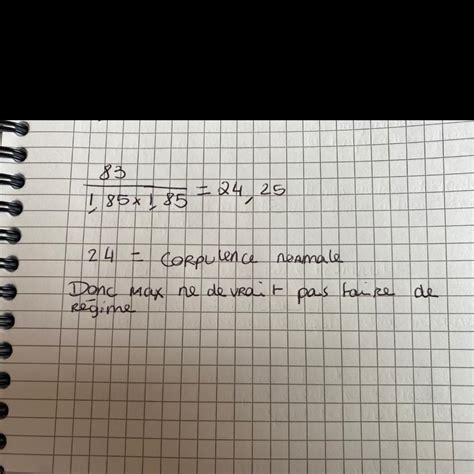 83
1,85x1,85 = 24,25
24 = corpulence normale
Donc max ne devrait pas faire de
régime